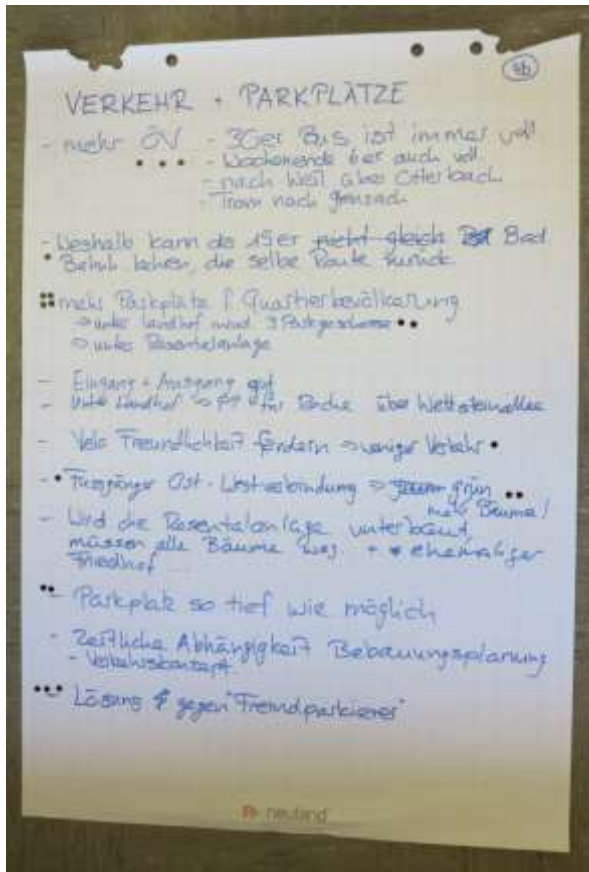 4b
VERKEHR + PARKPLÄTZE
- mehr ÖV - 30er Bus ist immer voll
- Wochenende 6er auch voll
- nach Weil über Otterbach
- Tram nach Grenzach
- Weshalb kann da 15er nicht gleich Bad.
Bahnh. , die selbe Route zurück
mehr Parkplätze f. Quartierbevölkerung
⇒ unter Landhof mind. 3 Parkgeschosse
⇒ unter Rosentalanlage
- Eingang + Ausgang gut
- unter Landhof ⇒ für über Wettsteinallee
- Velo Freundlichkeit fördern ⇒ weniger Verkehr
- Fussgänger Ost-Westverbindung ⇒ grün
mehr Bäume!
- Wird die Rosentalanlage unterbaut,
müssen alle Bäume weg. + ehemaliger
Friedhof
- Parkplatz so tief wie möglich
- Zeitliche Abhängigkeit Bebauungsplanung
- Verkehrskonzept
Lösung gegen "Fremdparkierer"
neuland